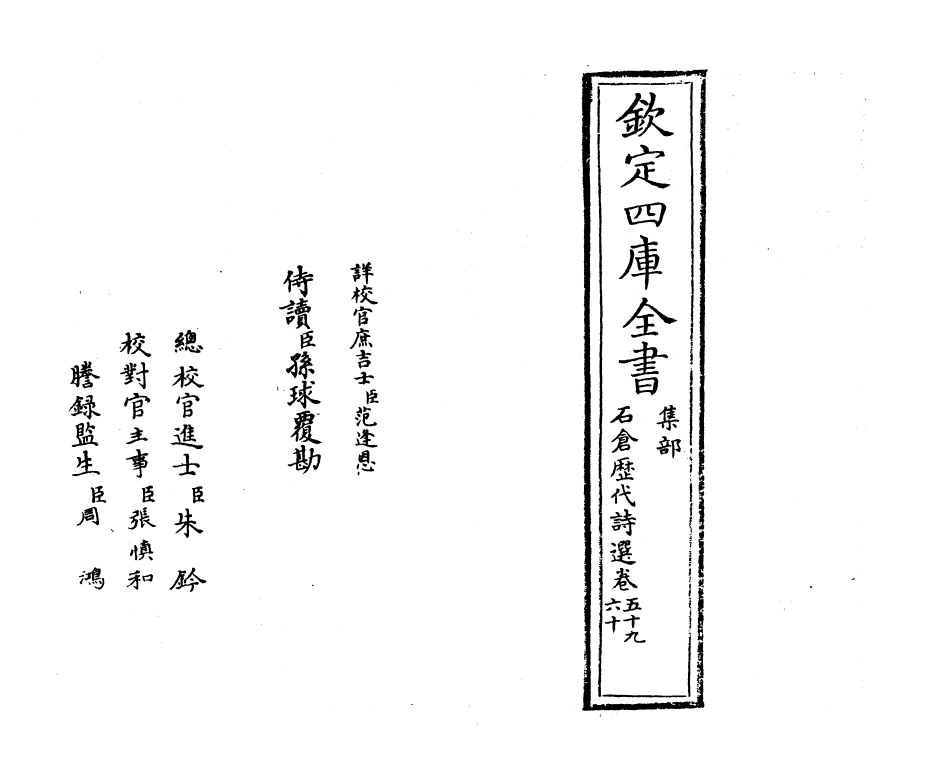 欽定四庫全書
集部
石倉歷代詩選卷五十九
六十
詳校官庶吉士臣范逢恩
侍讀臣孫球覆勘
總校官進士臣朱鈐
校對官主事臣張慎和
謄録監生臣周鴻